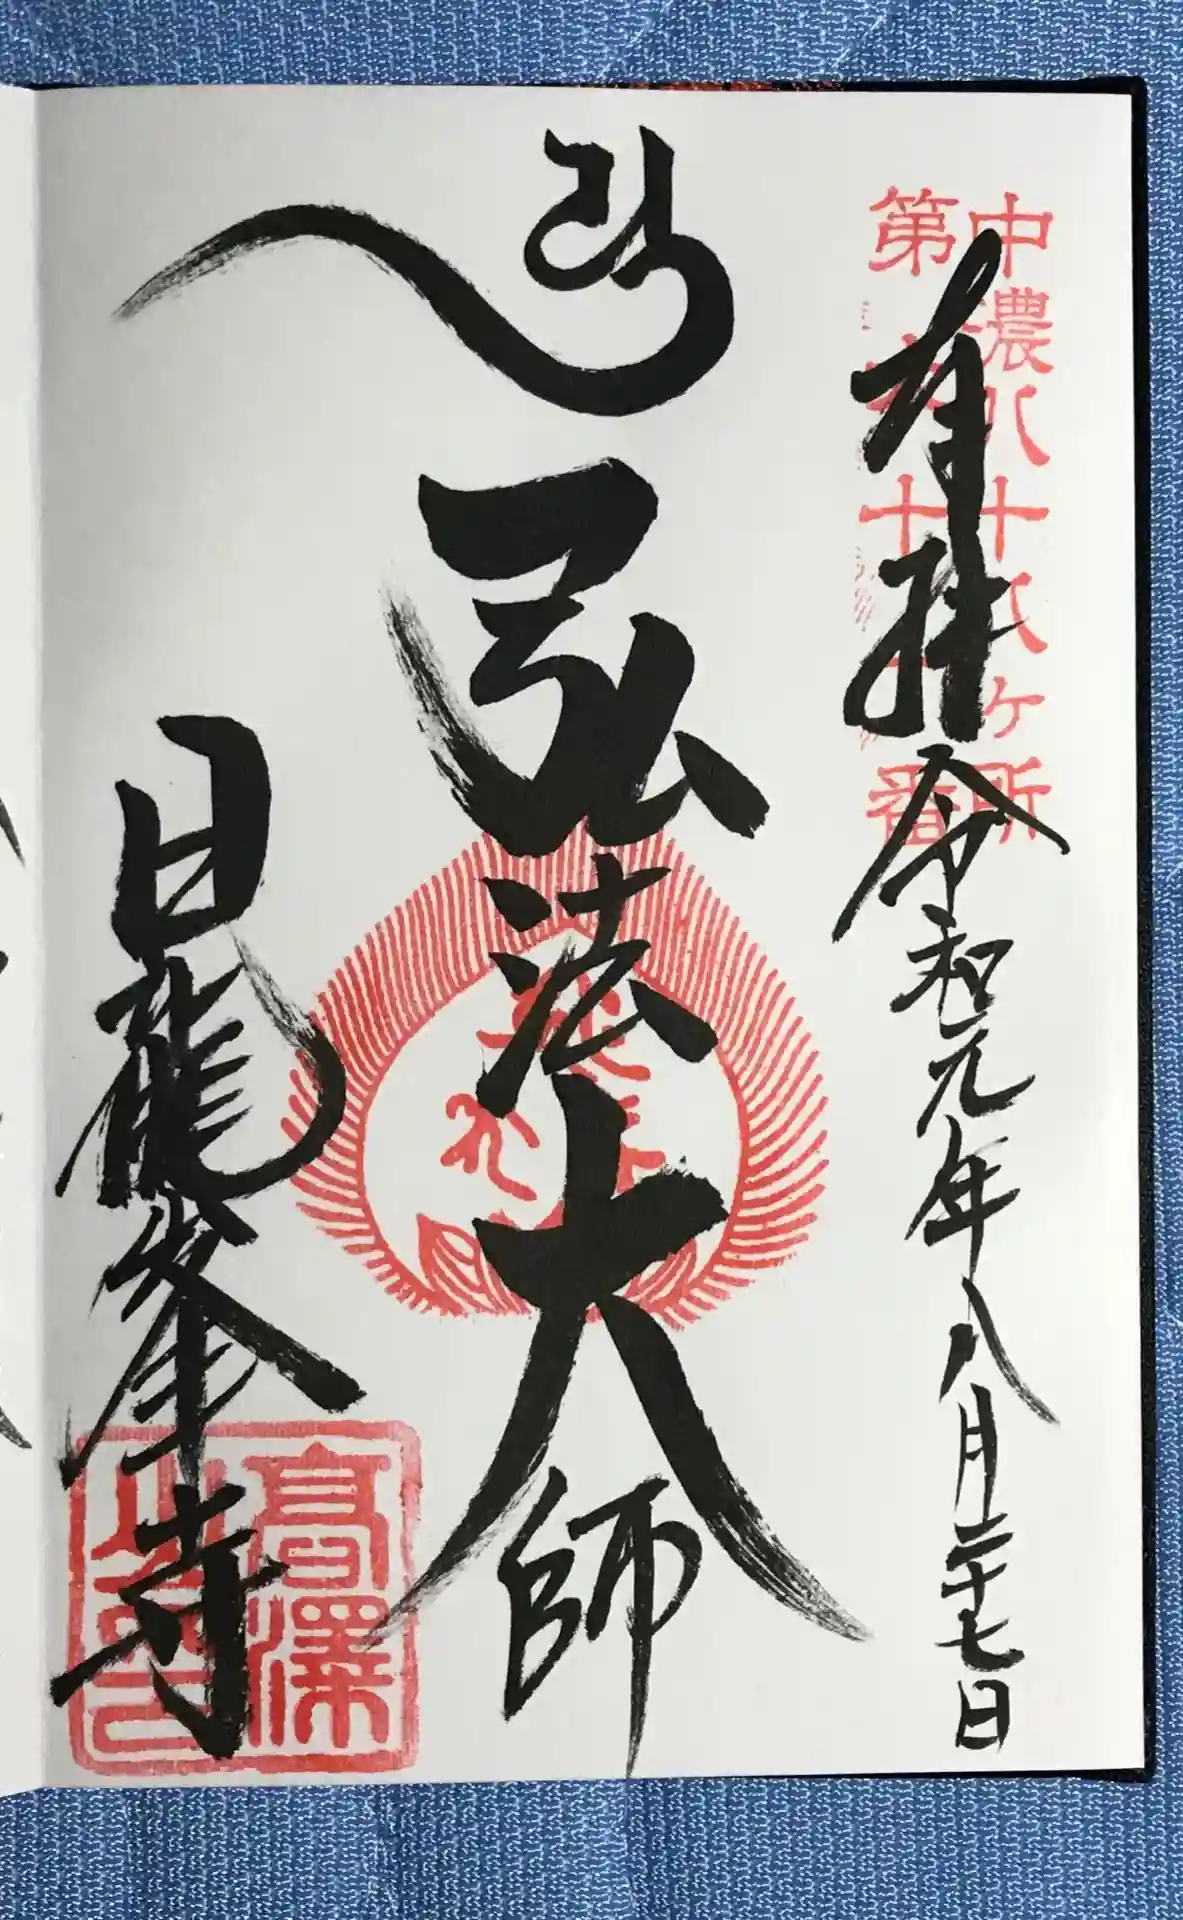 中濃八十八ヶ所
第六十一番
奉拝
令和元年八月二十七日
弘法大師
日龍峯寺
高澤